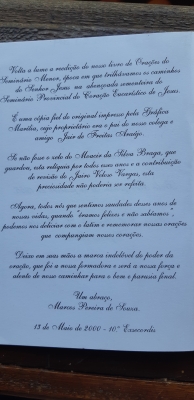 Volta a lume a reedição do nosso livro de Orações do
Seminário Menor, época em que trilhávamos os caminhos
do Senhor Jesus na abençoada sementeira do
Seminário Provincial do Coração Eucarístico de Jesus.
É uma cópia fiel do original impresso pela Gráfica
Marília, cujo proprietário era o pai do nosso colega e
amigo Jair de Freitas Araújo.
Se não fosse o zelo do Moacir da Silva Braga, que
guardou, esta relíquia por todos esses anos e a contribuição
de revisão do Jairo Veloso Vargas, esta
preciosidade não poderia ser refeita.
Agora, todos nós que sentimos saudades desses anos de
nossas vidas, quando "éramos felizes e não sabíamos",
podemos nos deliciar com o latim e rememorar nossas orações
que compungiam nossos corações.
Deixo em suas mãos a marca indelével do poder da
oração, que foi a nossa formadora e será a nossa força e
alento de nosso caminhar para o bom e paraíso final.
Um abraço,
Marcos Pereira de Sousa.
13 de Maio de 2000 - 10º Exsecordis